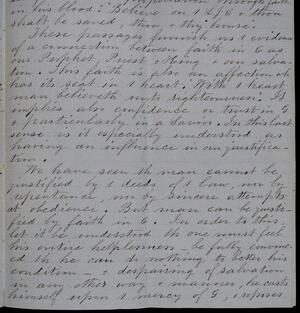 in his blood: Believe on t L J C & thou
shalt be saved, thou & thy house.
These passages furnish us t evidence
of a connection between faith in C as
our Prophet, Priest & King & our salva-
tion. This faith is also an affection wh
has its seat in t heart. With t heart
man believeth unto righteousness. It
implies also confidence or trust in G
& particularly in a Savior. In this last
sense is it especially understood as
having an influence in our justifica-
tion.
We have seen th man cannot be
justified by t deeds of t law, nor by
repentance, nor by sincere attempts
at obedience. But man can be justi-
fied by faith in C. In order to this,
let it be understood th one must feel
his entire helplessness - be fully convinc-
ed th he can do nothing to better his
condition - & despairing of salvation
in any other way & manner, he casts
himself upon t mercy of G, & reposes